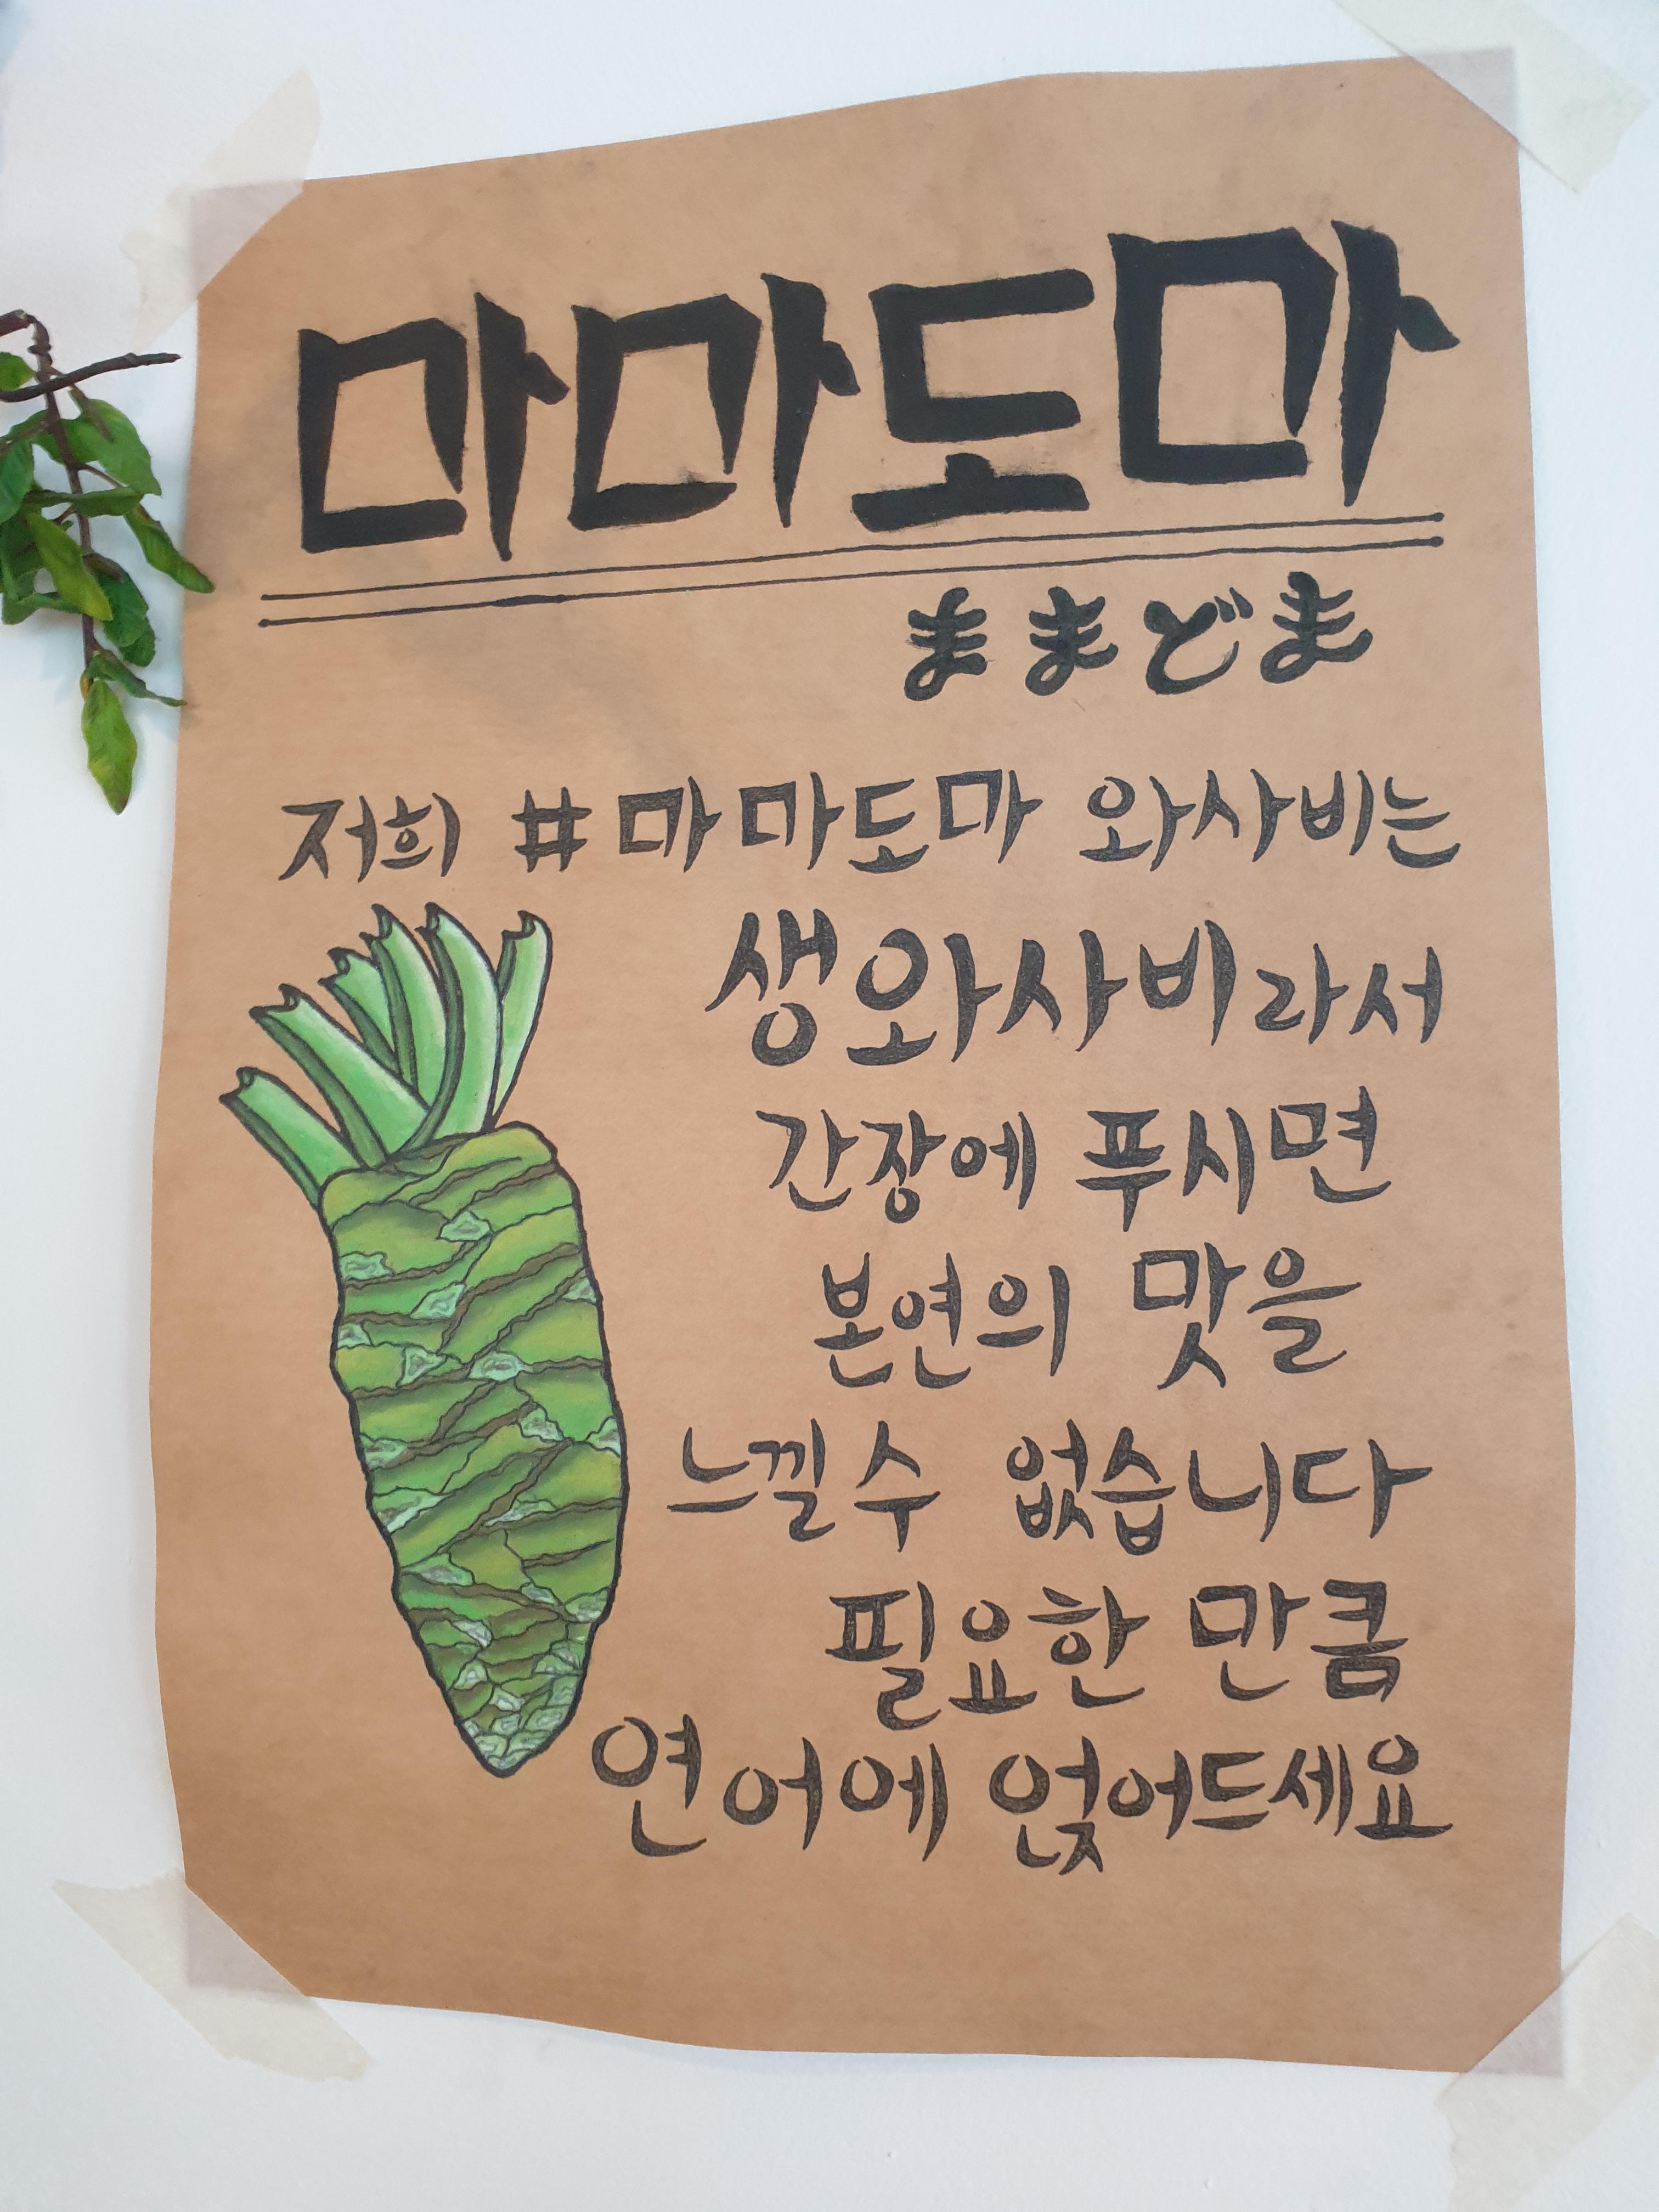 마마도마
ままどま
저희 #마마도마 와사비는
생와사비라서
간장에 푸시면
본연의 맛을
느낄수 없습니다
필요한 만큼
연어에 얹어드세요